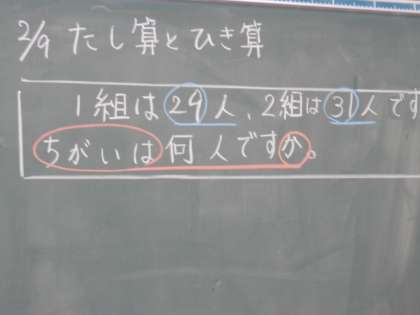 2/9 たし算とひき算
1組は29人、2組は31人です
ちがいは何人ですか。